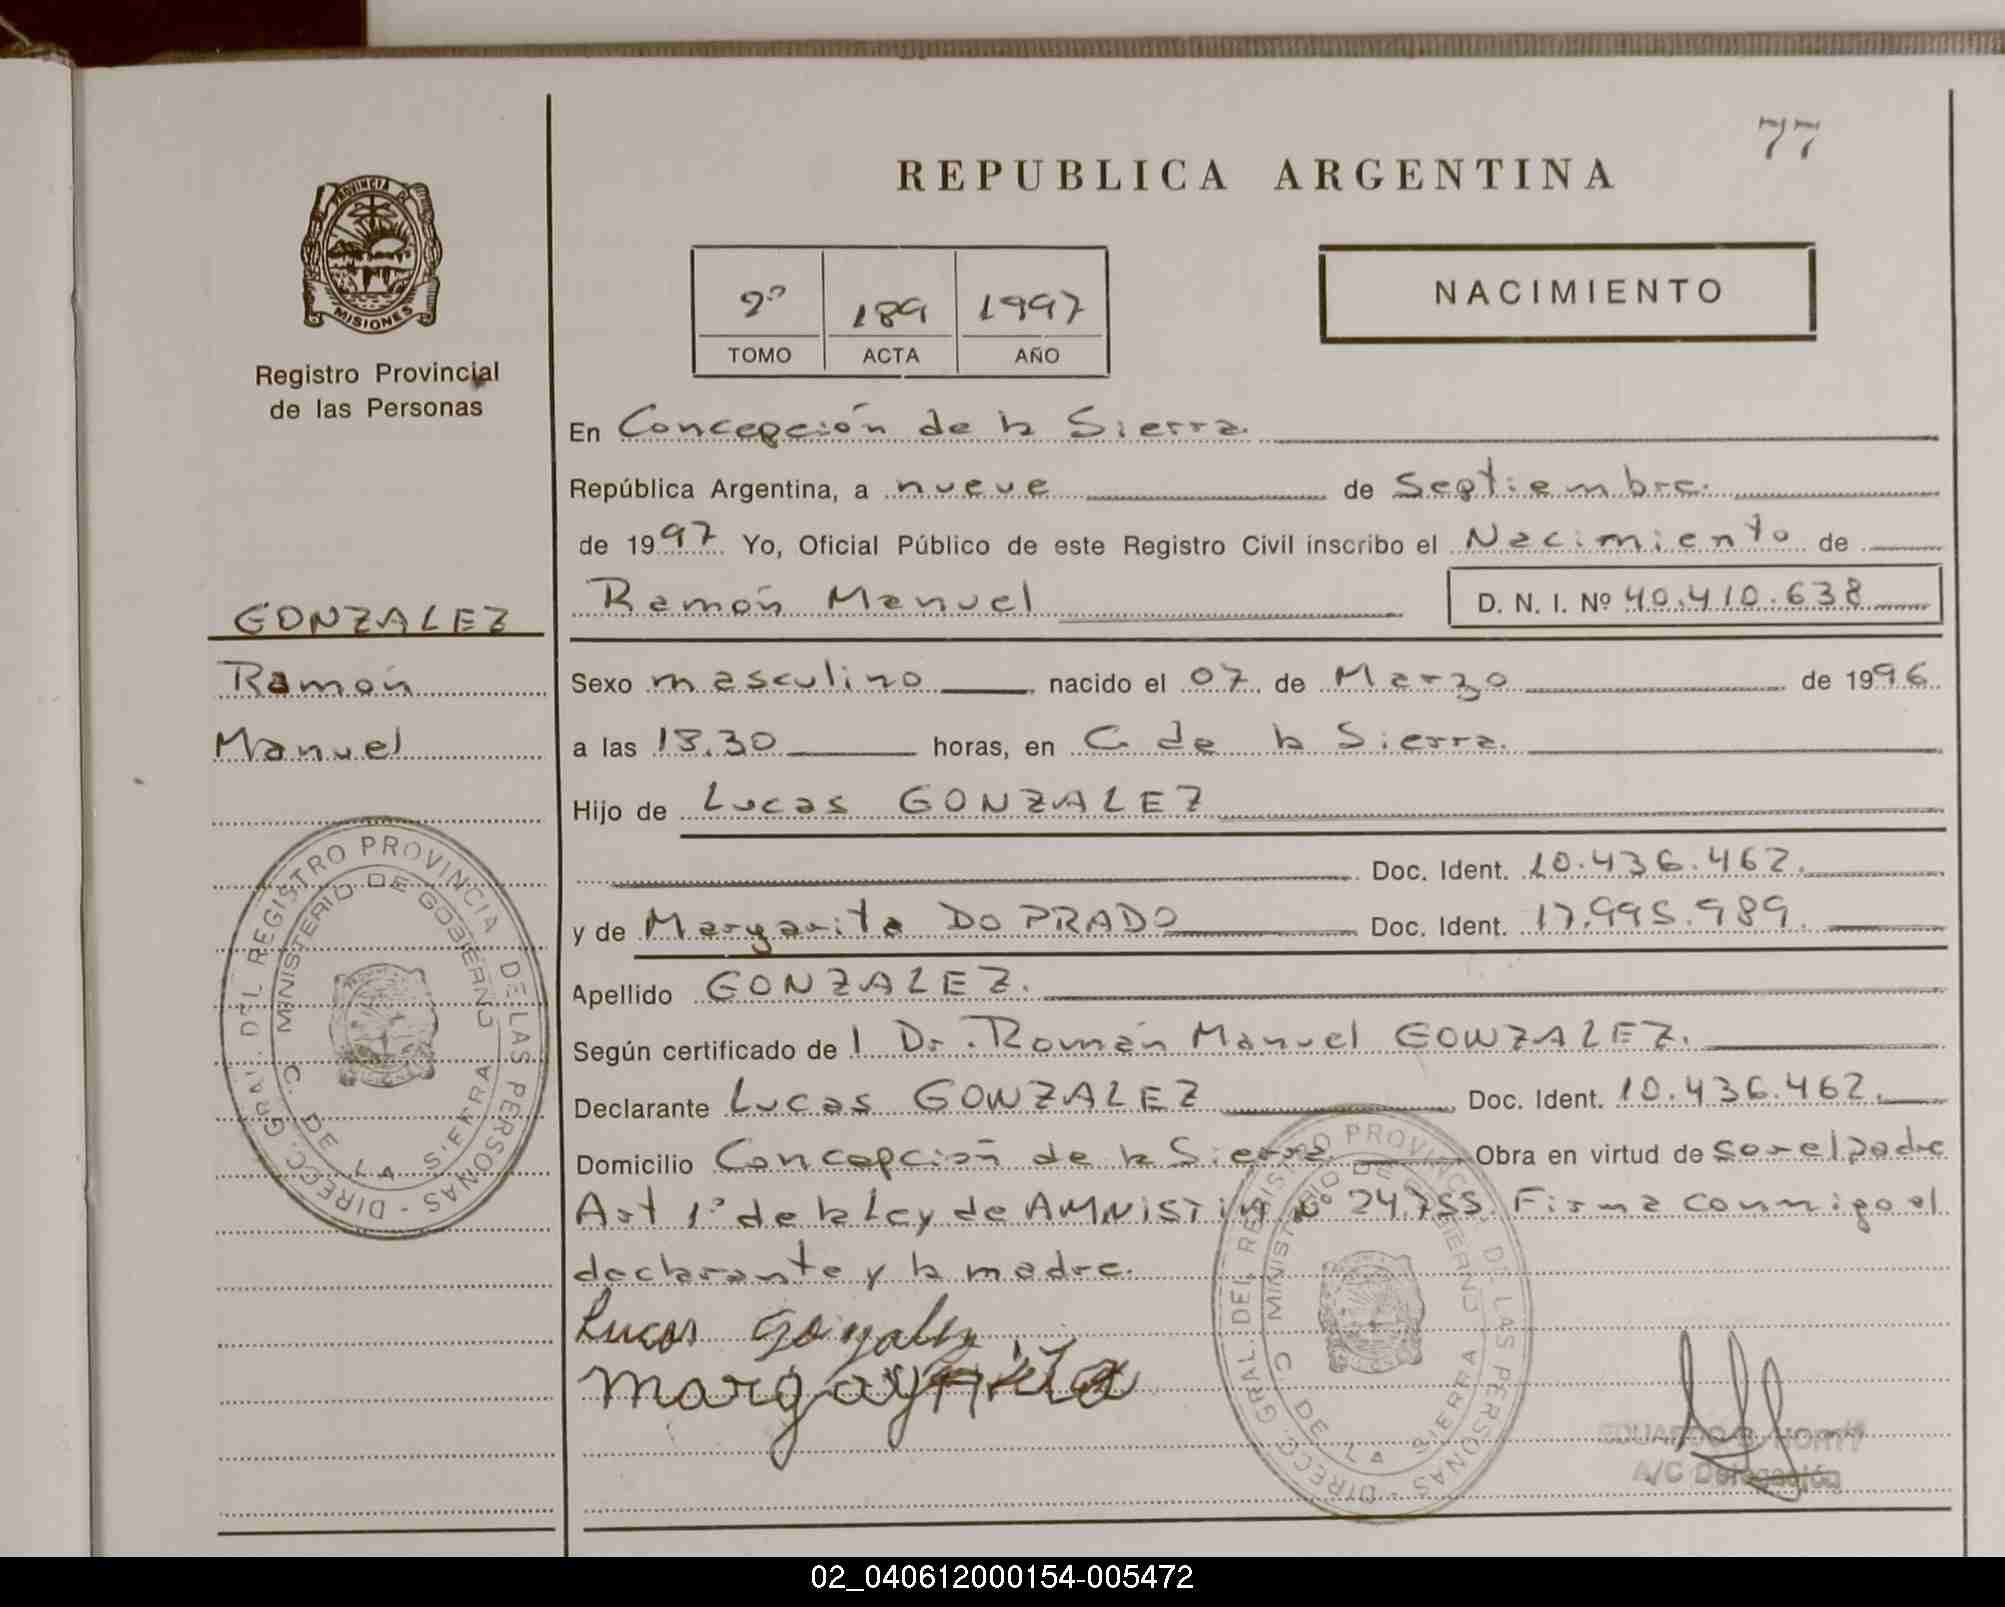 77
REPUBLICA ARGENTINA
PROVINCIA DE
MISIONES
Registro Provincial
de las Personas
2º 189 1997
TOMO ACTA AÑO
NACIMIENTO
En Concepción de la Sierra.
República Argentina, a nueve de Septiembre.
de 1997 Yo, Oficial Público de este Registro Civil inscribo el Nacimiento de
GONZALEZ
Ramón Manuel D. N. I. Nº 40.410.638
Ramón
Sexo masculino nacido el 07 de Marzo de 1996
Manuel
a las 13.30 horas, en C. de la Sierra.
Hijo de Lucas GONZALEZ
Doc. Ident. 10.436.462.
y de Margarita DO PRADO Doc. Ident. 17.995.989.
Apellido GONZALEZ.
Según certificado de l Dr. Román Manuel GONZALEZ.
Declarante Lucas GONZALEZ Doc. Ident. 10.436.462.
Domicilio Concepción de la Sierra Obra en virtud de ser el padre
Art 1º de la Ley de AMNISTIA Nº 24.755. Firma conmigo el
declarante y la madre.
Lucas Gonzalez
DIRECC. GRAL. DEL REGISTRO PROVINCIAL DE LAS PERSONAS
MINISTERIO DE GOBIERNO
C. DE LA SIERRA
DIRECC. GRAL. DEL REGISTRO PROVINCIAL DE LAS PERSONAS
MINISTERIO DE GOBIERNO
C. DE LA SIERRA
EDUARDO
A/C Delegación
02_040612000154-005472